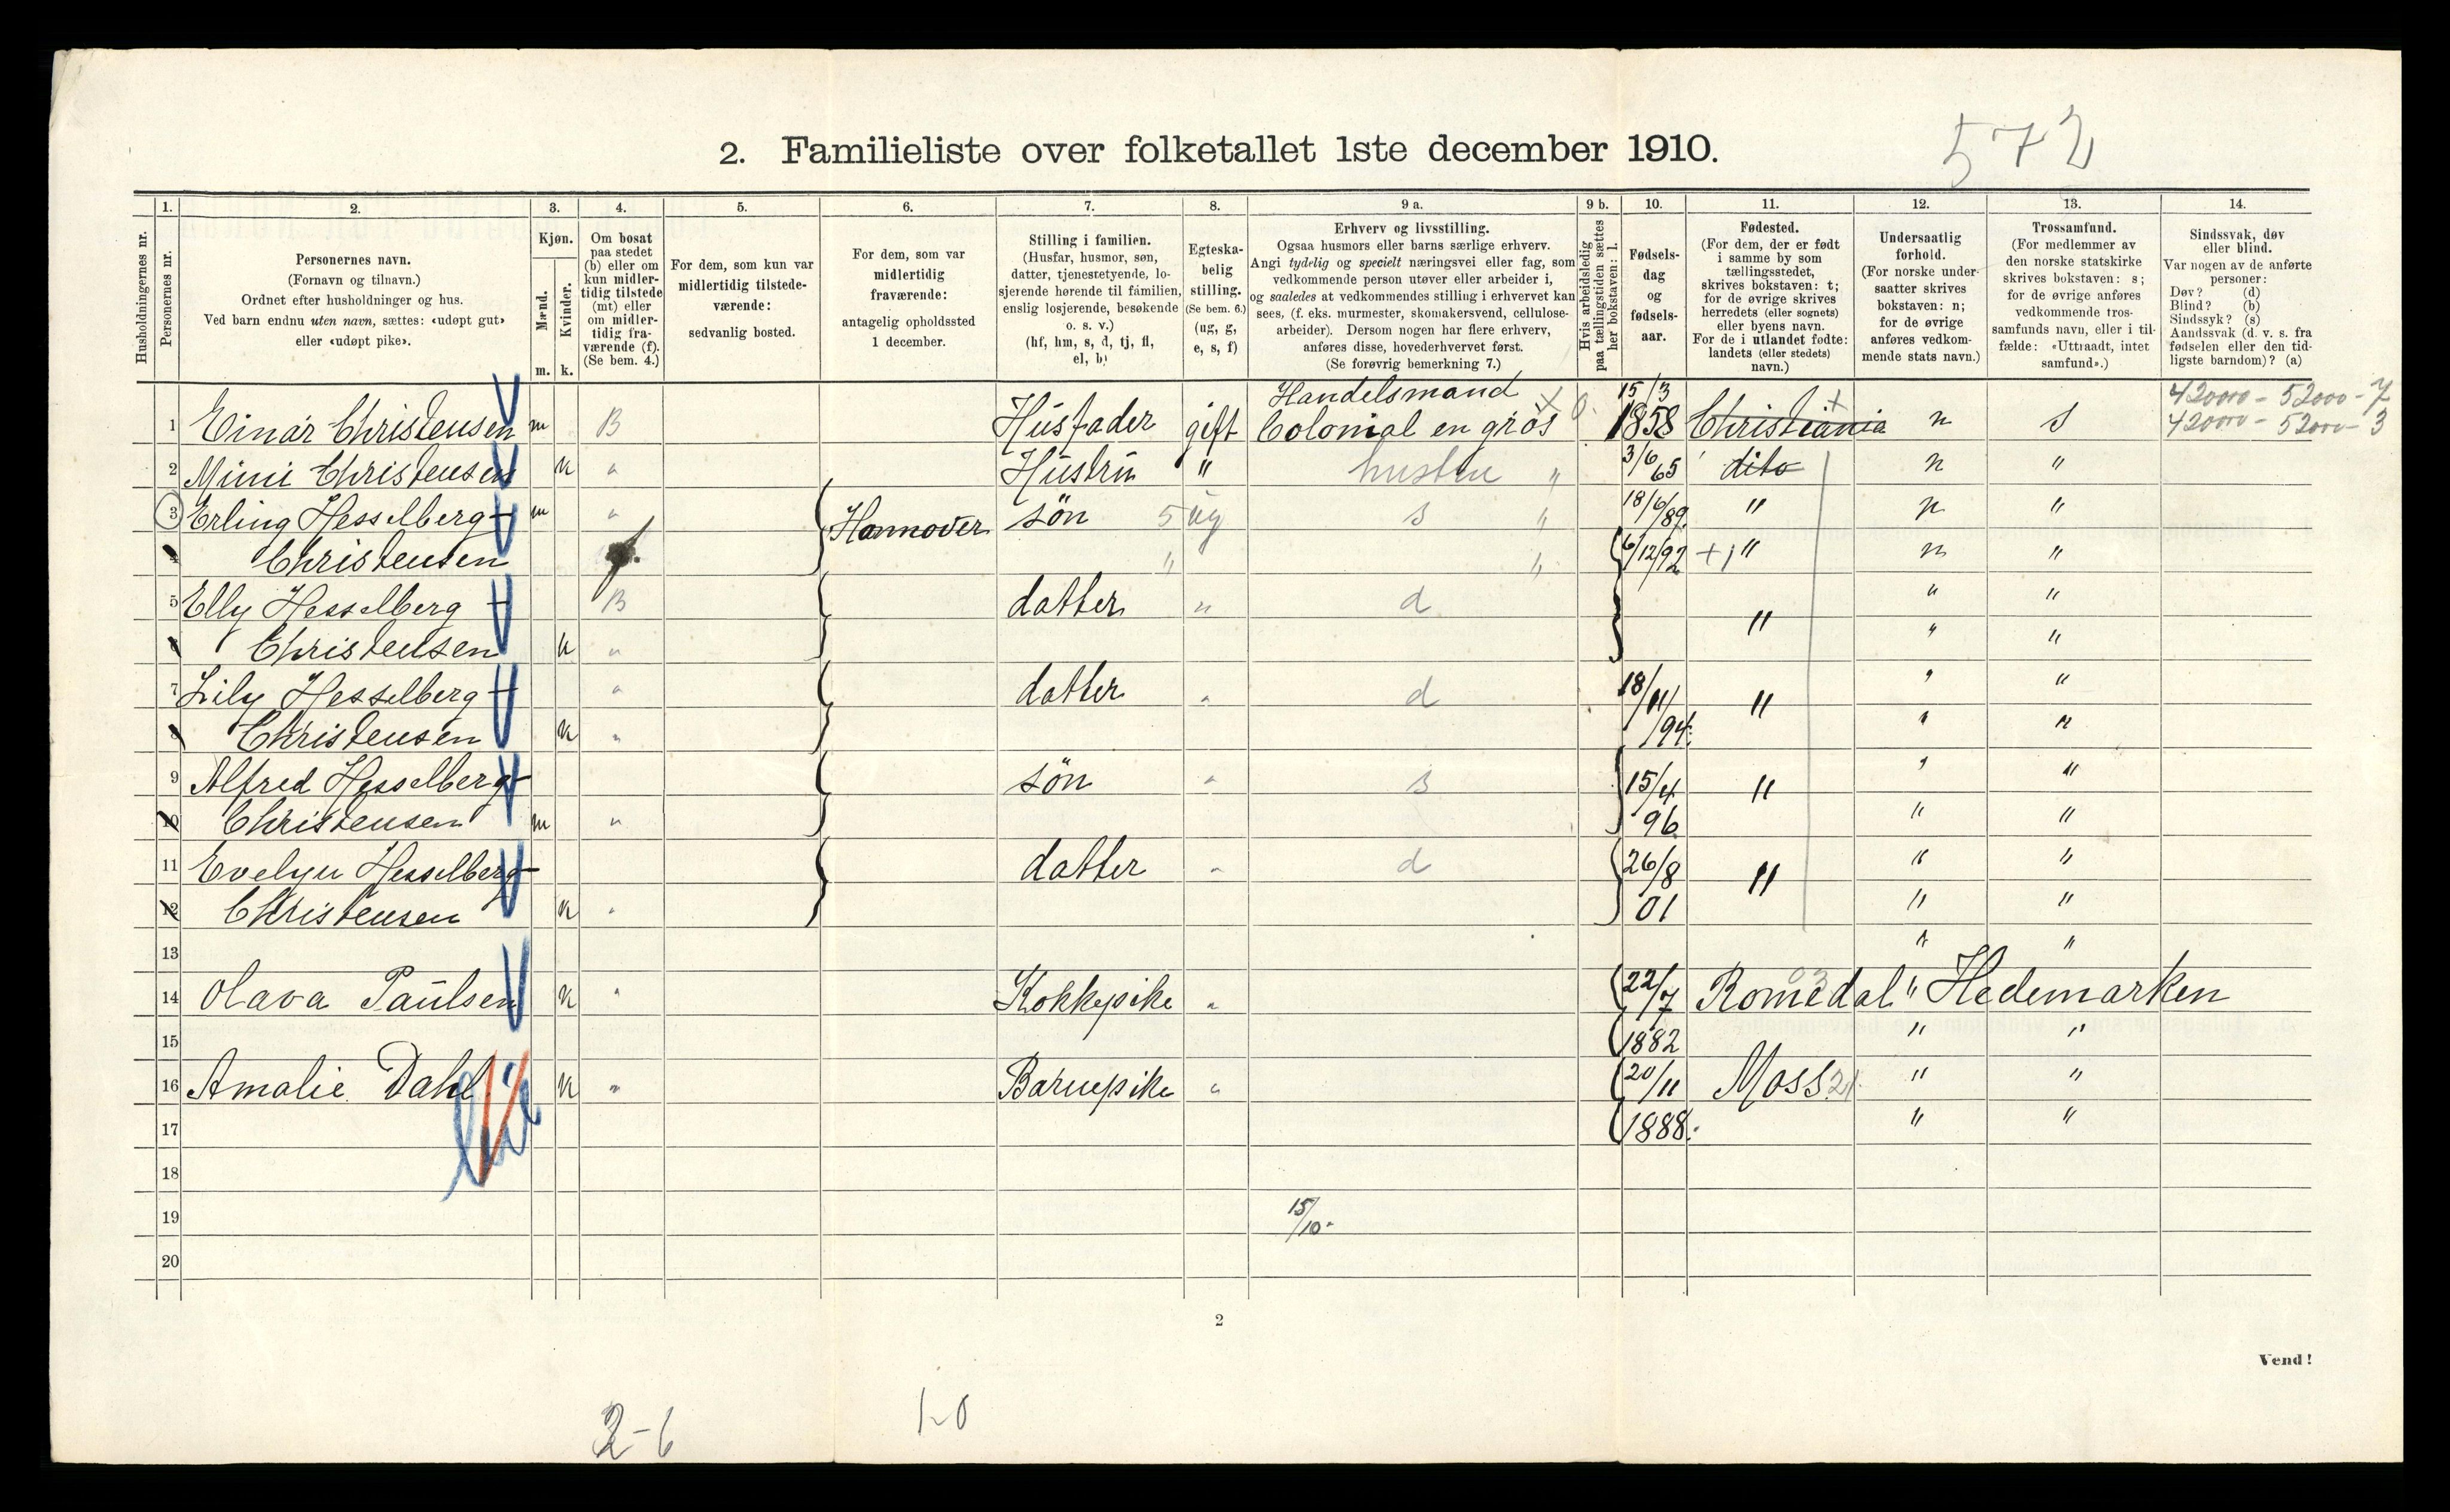 572
2. Familieliste over folketallet 1ste december 1910.
Husholdningernes nr.
1. Personernes nr.
2. Personernes navn.
(Fornavn og tilnavn.)
Ordnet efter husholdninger og hus.
Ved barn endnu uten navn, sættes: «udøpt gut»
eller «udøpt pike».
3. Kjøn.
Mænd. m.
Kvinder. k.
4. Om bosat
paa stedet
(b) eller om
kun midler-
tidig tilstede
(mt) eller
om midler-
tidig fra-
værende (f).
(Se bem. 4.)
5. For dem, som kun var
midlertidig tilstede-
værende:
sedvanlig bosted.
6. For dem, som var
midlertidig
fraværende:
antagelig opholdssted
1 december.
7. Stilling i familien.
(Husfar, husmor, søn,
datter, tjenestetyende, lo-
sjerende hørende til familien,
enslig losjerende, besøkende
o. s. v.)
(hf, hm, s, d, tj, fl,
el, b)
8. Egteska-
belig
stilling.
(Se bem. 6.)
(ug, g,
e, s, f)
9 a. Erhverv og livsstilling.
Ogsaa husmors eller barns særlige erhverv.
Angi tydelig og specielt næringsvei eller fag, som
vedkommende person utøver eller arbeider i,
og saaledes at vedkommendes stilling i erhvervet kan
sees, (f. eks. murmester, skomakersvend, cellulose-
arbeider). Dersom nogen har flere erhverv,
anføres disse, hovederhvervet først.
(Se forøvrig bemerkning 7.)
9 b. Hvis arbeidsledig
paa tællingstiden sættes
her bokstaven: l.
10. Fødsels-
dag
og
fødsels-
aar.
11. Fødested.
(For dem, der er født
i samme by som
tællingsstedet,
skrives bokstaven: t;
for de øvrige skrives
herredets (eller sognets)
eller byens navn.
For de i utlandet fødte:
landets (eller stedets)
navn.)
12. Undersaatlig
forhold.
(For norske under-
saatter skrives
bokstaven: n;
for de øvrige
anføres vedkom-
mende stats navn.)
13. Trossamfund.
(For medlemmer av
den norske statskirke
skrives bokstaven: s;
for de øvrige anføres
vedkommende tros-
samfunds navn, eller i til-
fælde: «Uttraadt, intet
samfund».)
14. Sindssvak, døv
eller blind.
Var nogen av de anførte
personer:
Døv? (d)
Blind? (b)
Sindssyk? (s)
Aandssvak (d. v. s. fra
fødselen eller den tid-
ligste barndom)? (a)
Handelsmand 15/3 42000 - 52000 - 7
1 Einar Christensen m B Husfader gift Colonial en gros 1858 Christiania n S 42000 - 52000 - 3
2 Mimi Christensen k " Hustru " hustru " 3/6 65 dito n "
3 Erling Hesselberg- m " Hannover søn ug s " 18/6/89 " n "
4 Christensen " " 6/12/92 + " n "
5 Elly Hesselberg - B datter " d " " "
6 Christensen k " " "
7 Lily Hesselberg - " datter " d 18/11/ " " "
8 Christensen k " /94. " "
9 Alfred Hesselberg- søn " s 15/4 " " "
10 Christensen m " 96 " "
11 Evelyn Hesselberg- datter " d 26/8 " " "
12 Christensen k " 01 " "
13 " "
14 Olava Paulsen k " Kokkepike " 22/7 Romedal " Hedemarken
15 1882 " "
16 Amalie Dahl k " Barnepike " 20/11 Moss " "
17 1888. " "
18
19 15/10-
20
2
Vend!
2-6
1-0